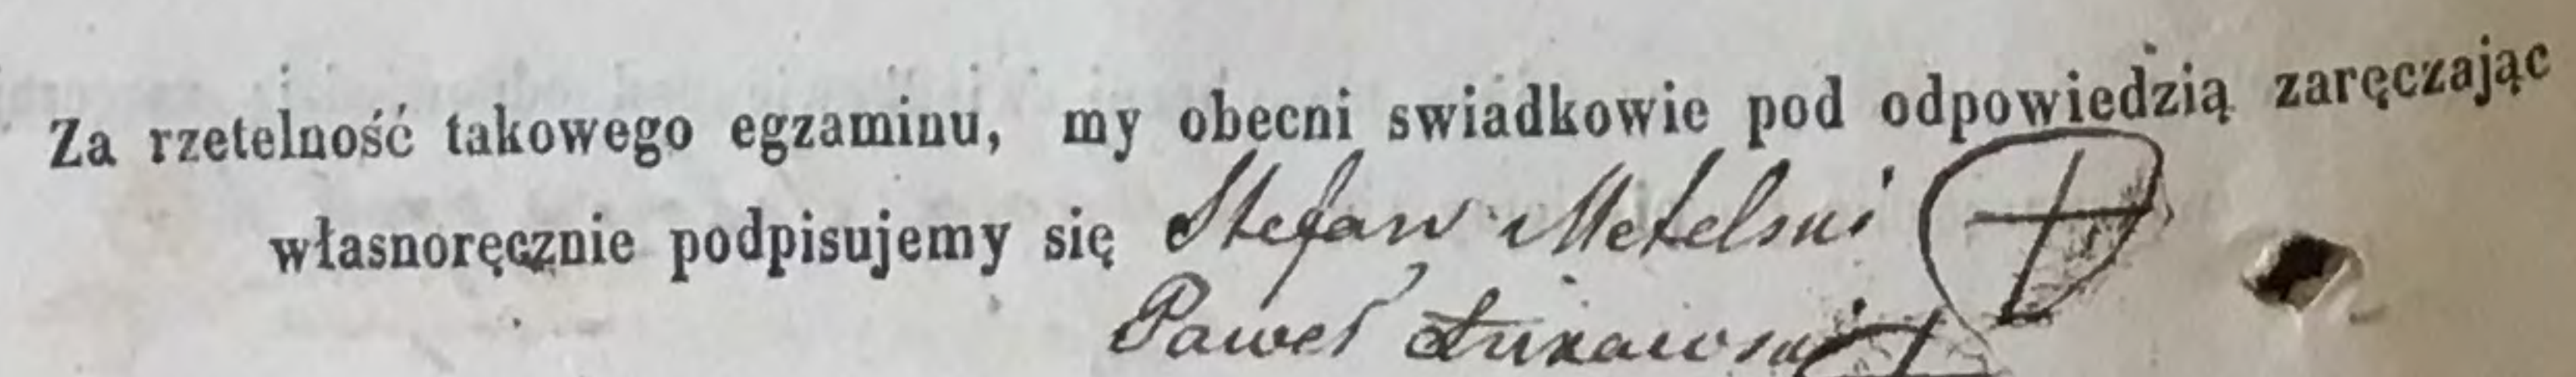 Za rzetelność takowego egzaminu, my obecni swiadkowie pod odpowiedzią zaręczając
własnoręcznie podpisujemy się Stefan Metelski
Paweł